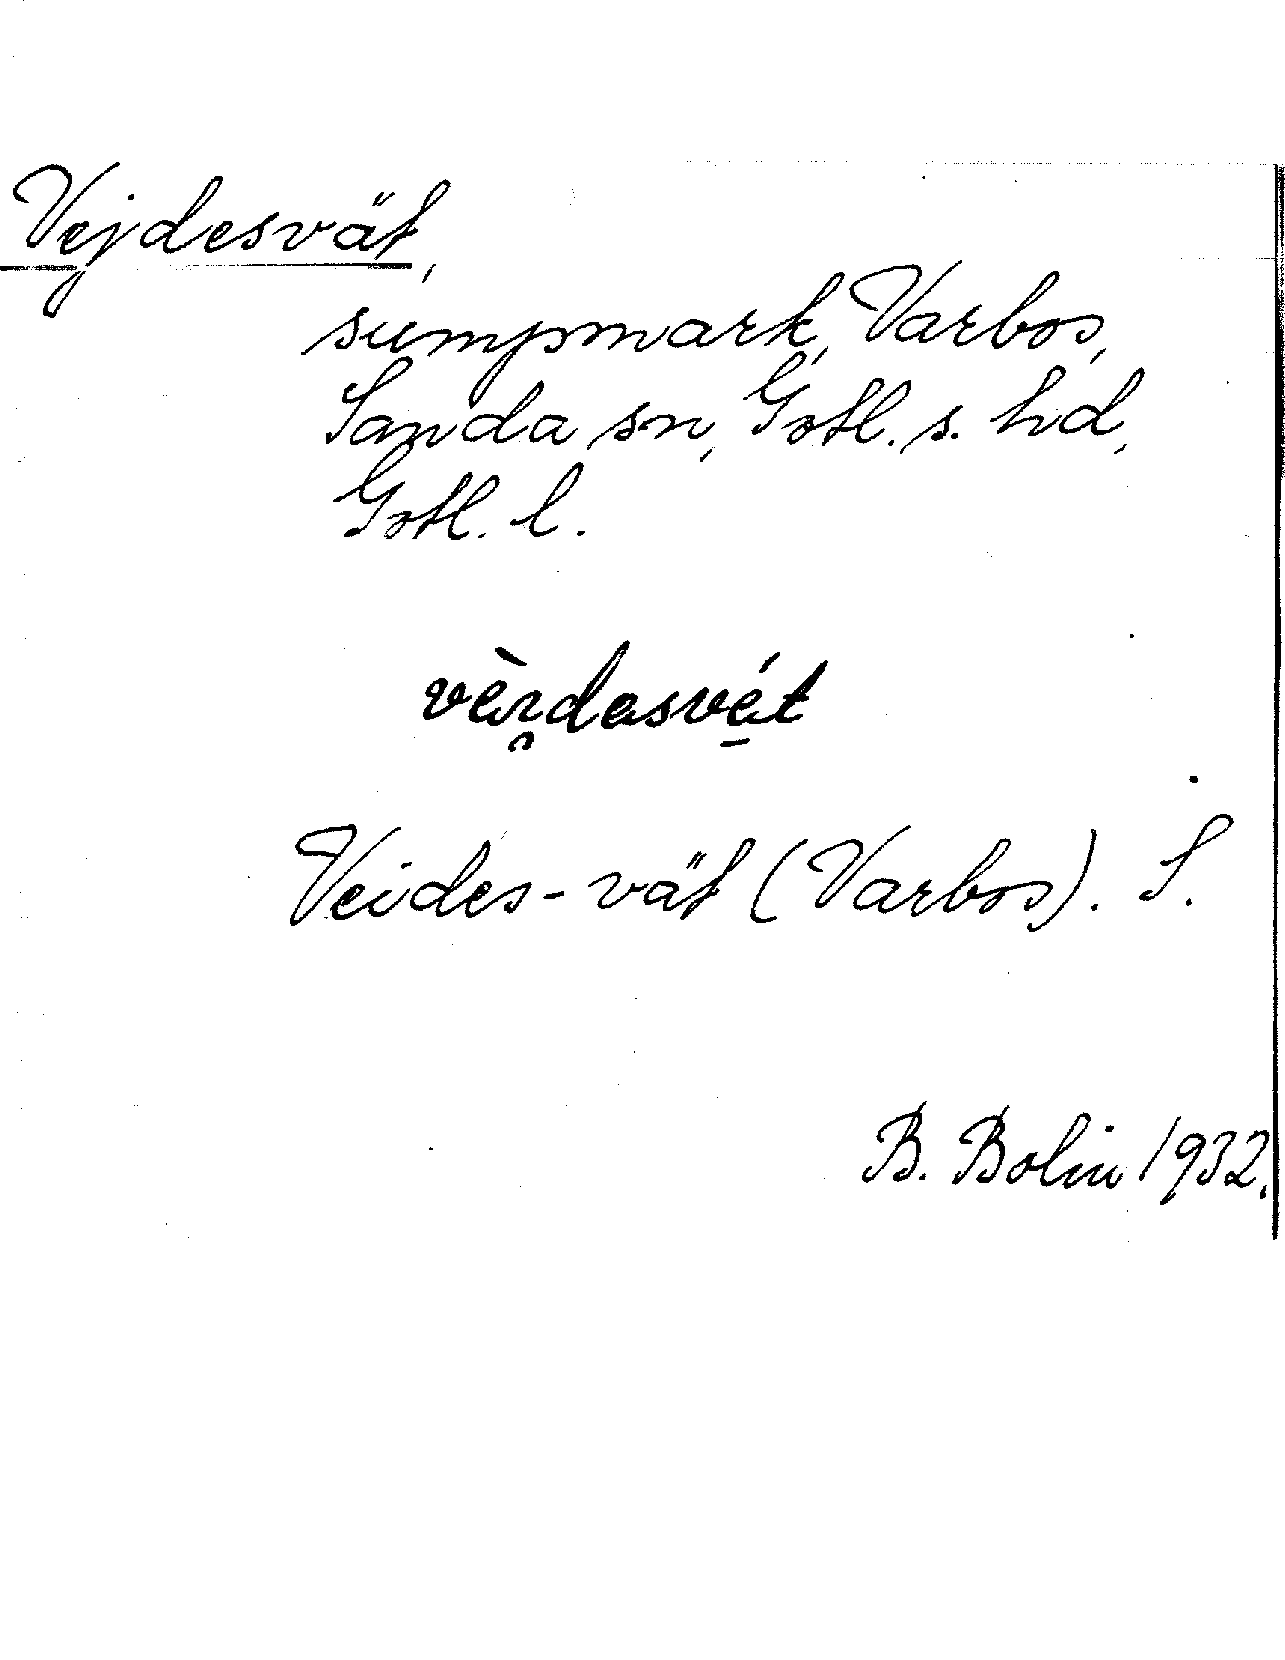 Vejdesvät,
sumpmark, Varbos,
Sanda sn, Gotl. s. hd,
Gotl. l.
Veides-vät (Varbos). S.
B. Bolin 1932.